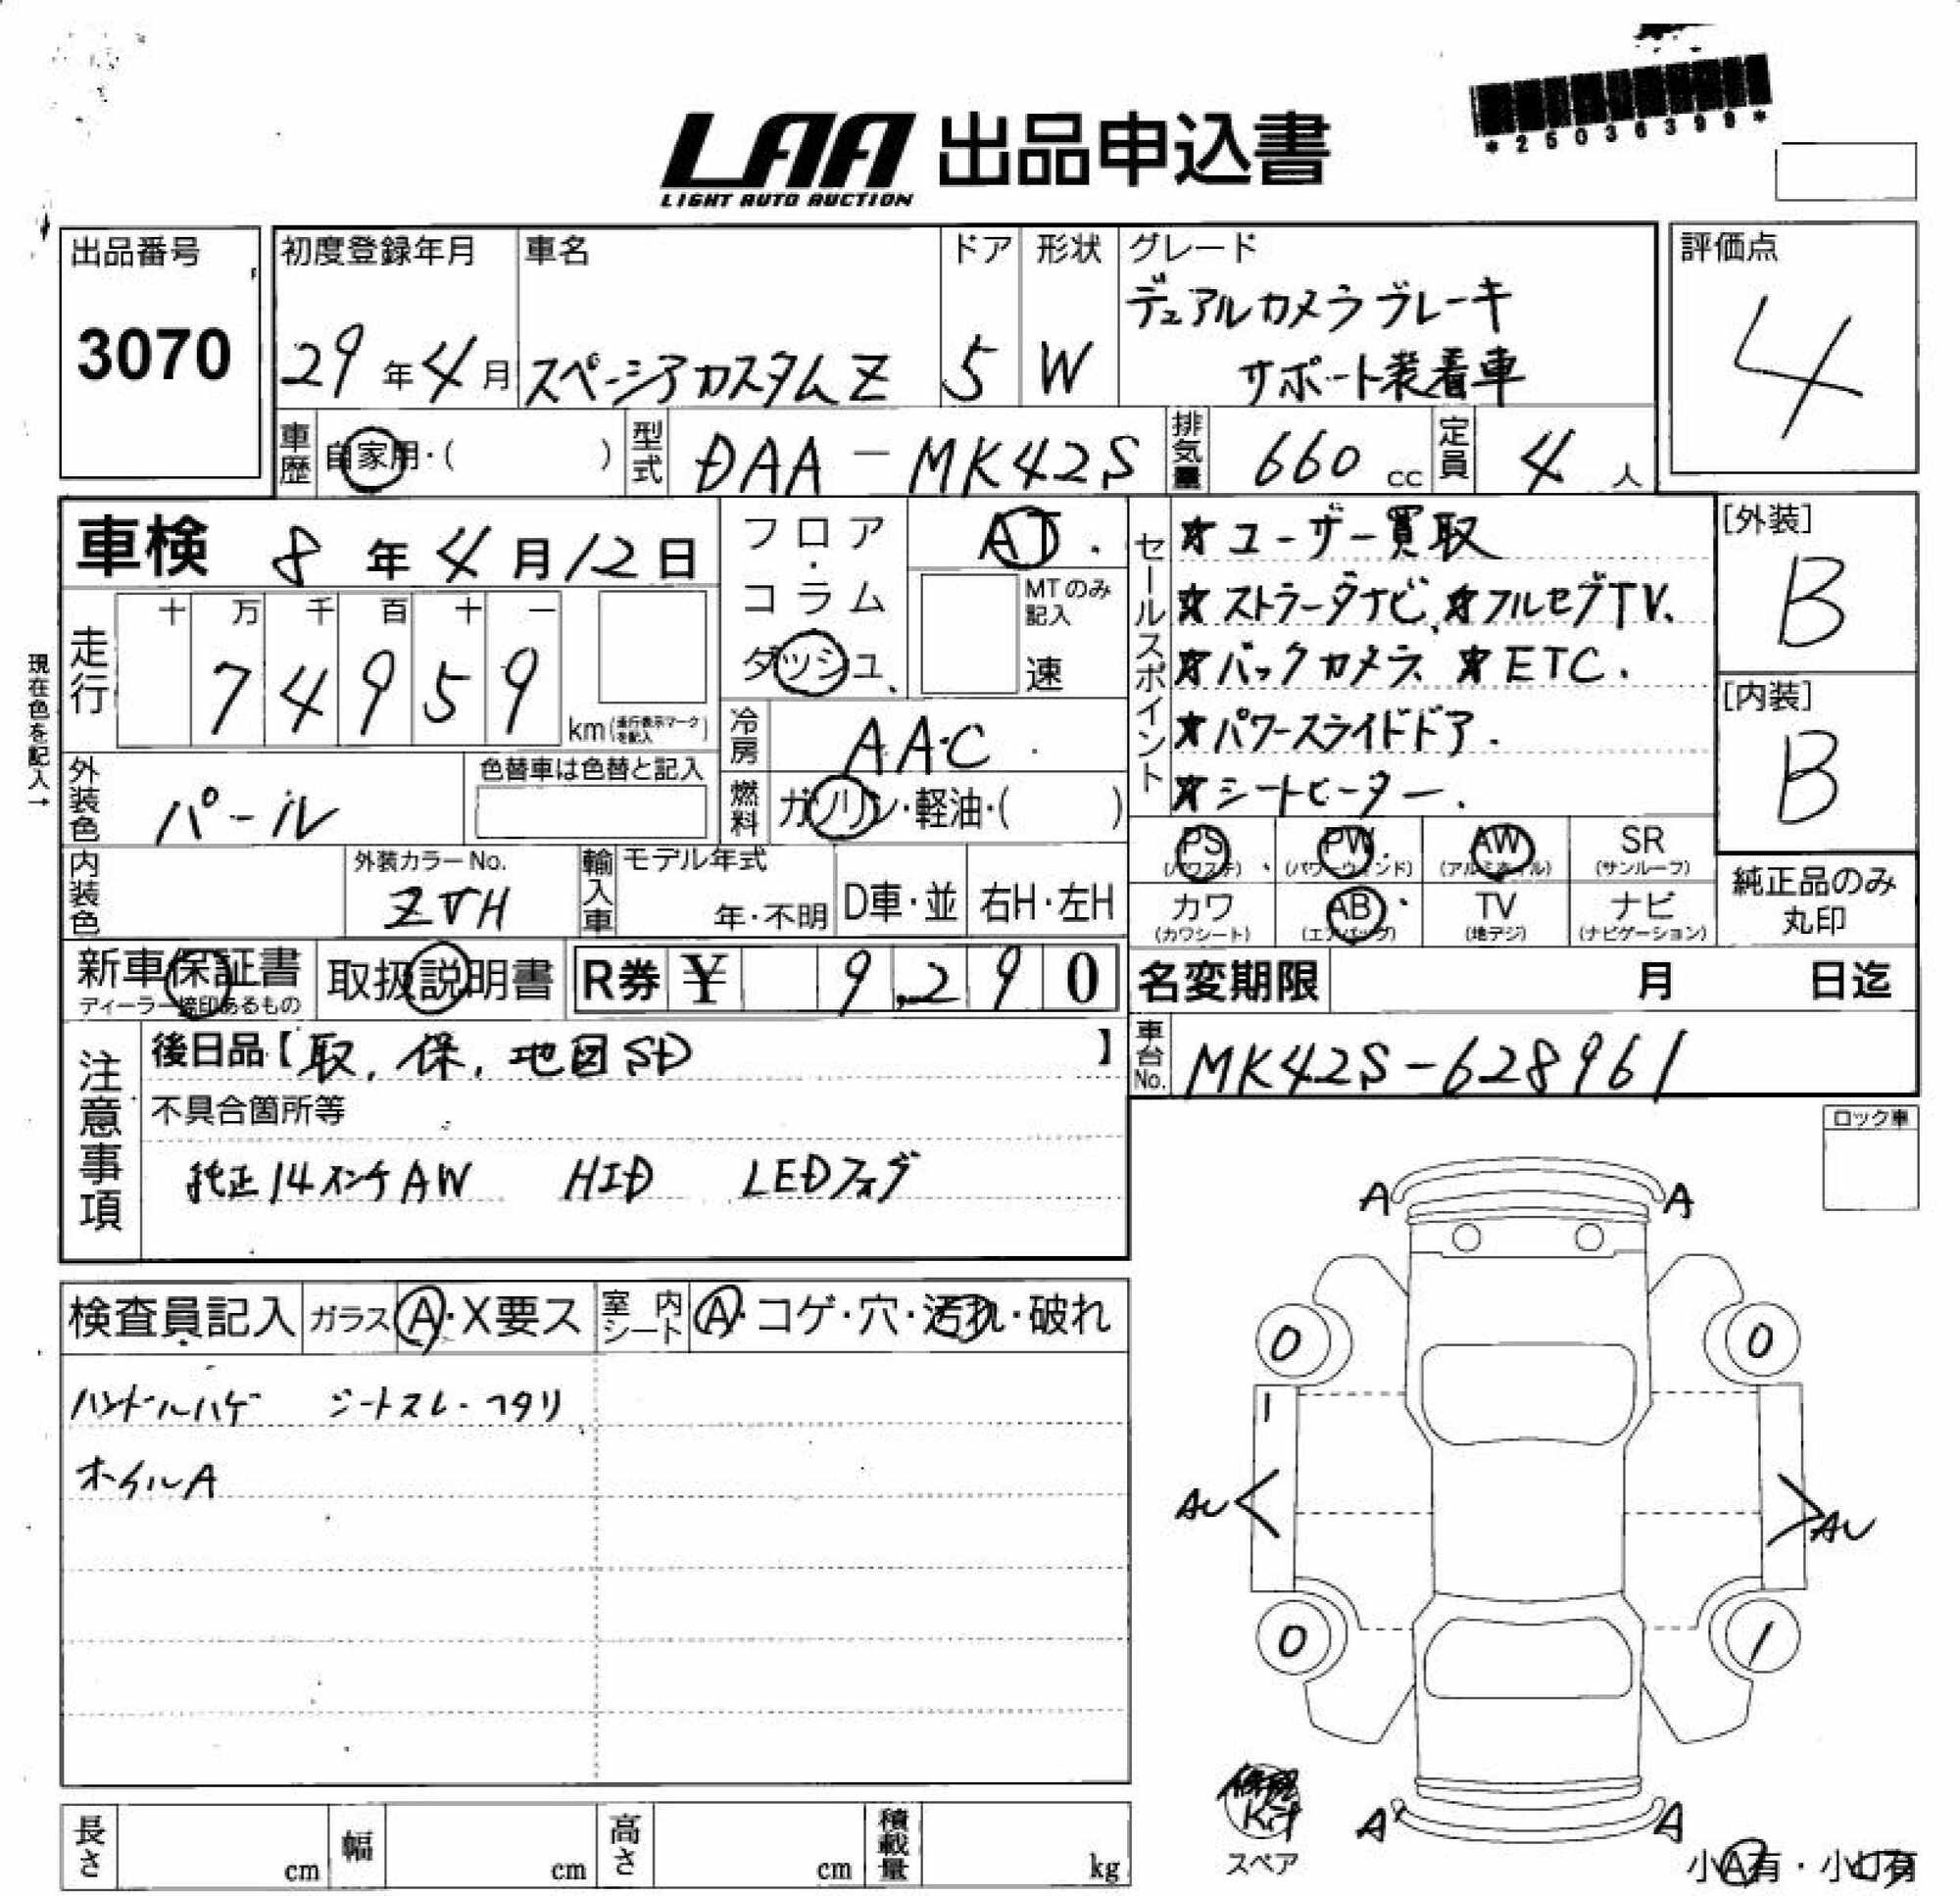 *25036399*
LAA 出品申込書
LIGHT AUTO AUCTION
出品番号
3070
初度登録年月
29年4月
車名
スペーシアカスタムZ
ドア
5
形状
W
グレード
デュアルカメラブレーキ
サポート装着車
評価点
4
車歴
自家用・( )
型式
DAA-MK42S
排気量
660 cc
定員
4 人
車検 8年4月12日
フロア・
コラム
ダッシュ
AT
MTのみ
記入
速
セールスポイント
★ユーザー買取
★ストラーダナビ、★フルセグTV.
★バックカメラ ★ETC.
★パワースライドドア.
★シートヒーター.
[外装]
B
[内装]
B
現在色を記入→
走行
十 万 千 百 十 一
7 4 9 5 9
km(走行表示マークを記入)
冷房
AAC
燃料
ガソリン・軽油・( )
外装色
パール
色替車は色替と記入
内装色
外装カラーNo.
ZVH
輸入車
モデル年式
年・不明
D車・並
右H・左H
PS (パワステ)
PW (パワーウィンド)
AW (アルミホイル)
SR (サンルーフ)
カワ (カワシート)
AB (エアバッグ)
TV (地デジ)
ナビ (ナビゲーション)
純正品のみ
丸印
新車保証書
ディーラー捺印あるもの
取扱説明書
R券 ¥ 9,290
名変期限 月 日迄
車台No.
MK42S-628961
注意事項
後日品【取、保、地図SD】
不具合箇所等
純正14インチAW HID LEDフォグ
ロック車
検査員記入
ガラス A・X要ス
室内シート A・コゲ・穴・汚れ・破れ
ハンドルハゲ シートスレ・ヘタリ
ホイルA
A A
0 0
1
AU AU
0 1
A A
修理
Kit
スペア
小A有・小U有
長さ cm
幅 cm
高さ cm
積載量 kg